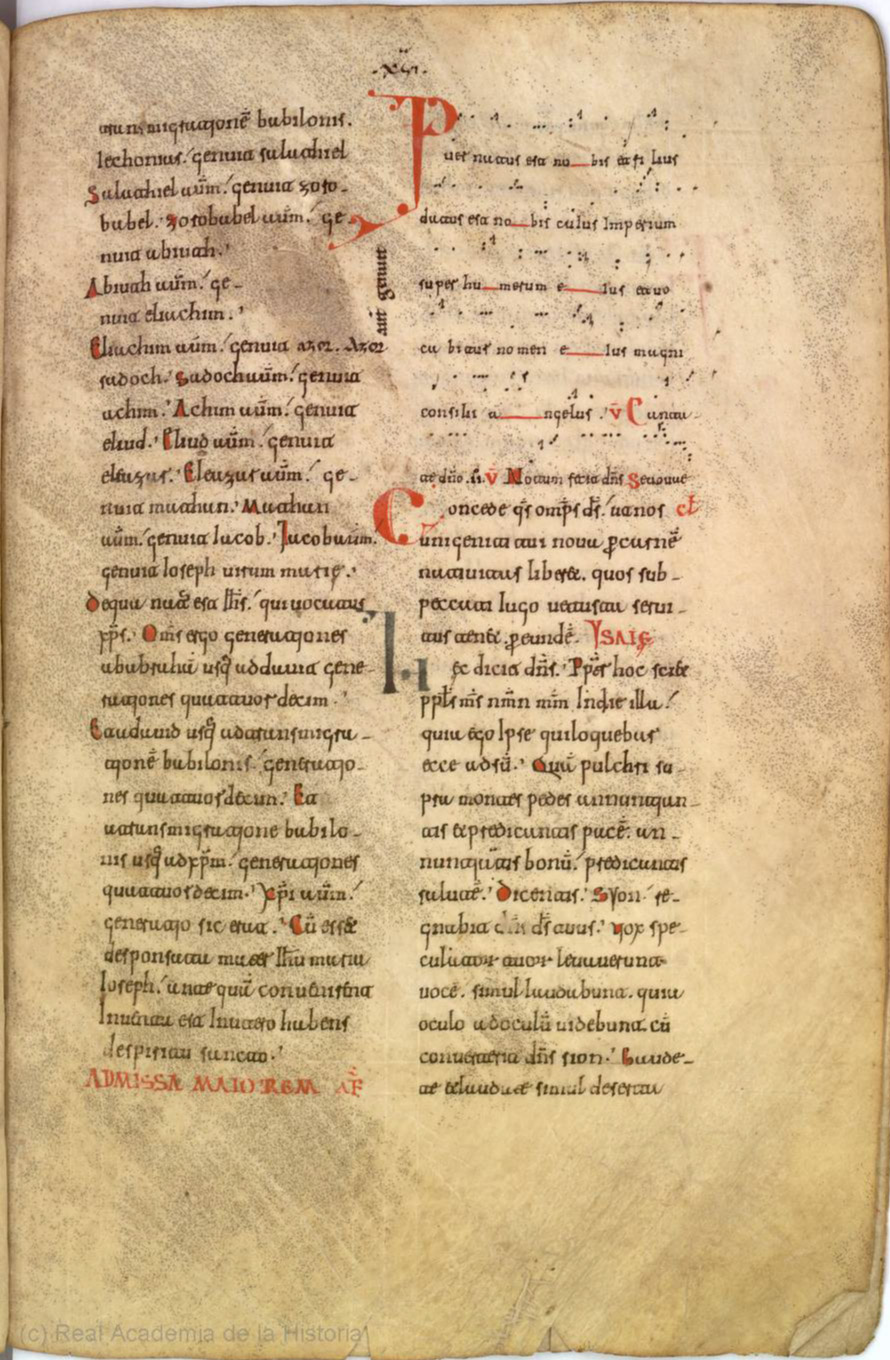 atransmigrationē babilonis.
Iechonias. genuit salathiel
Salathiel aūm. genuit zoro-
babel. Zorobabel aūm. ge
nuit abiuth.
Abiuth aūm. ge-
nuit eliachim.
Eliachim aūm. genuit azor. Azor
aūt genuit
sadoch. Sadoch aūm. genuit
achim. Achim aūm. genuit
eliud. Eliud aūm. genuit
eleazar. Eleazar aūm. ge-
nuit mathan. Mathan
aūm. genuit Iacob. Iacob aūm.
genuit Ioseph uirum marie.
De qua natus est Ihs. qui uocatur
xp̄s. Om̄s ergo generationes
ab abraham usq; ad dauid gene-
rationes quattuordecim.
Et a dauid usq; ad transmigra-
tionē babilonis. generatio-
nes quattuordecim. Et
a transmigratione babilo-
nis usq; ad xp̄m. generationes
quattuordecim. Xp̄i aūm.
generatio sic erat. Cū esset
desponsata mater Ih̄u maria
Ioseph. anteq̄uā conuenirent
Inuenta est In utero habens
de spiritu sancto.
AD MISSA MAIOREM
Puer natus est no_bis et filius
datus est no_bis cuius Imperium
super hu_merum e_ius et uo
cabitur nomen e_ius magni
consilii a_ngelus. V Canta-
te dño. V Notum fecit dñs Seuouae
Concede q̄s omp̄s d̄s. ut nos
unigeniti tui noua p carnē
natiuitas liberet. quos sub-
peccati iugo uetusta serui-
tus tenet. p eundē. YSAIE
Hec dicit dñs. Ppter hoc sciet
ppl̄s m̄s nm̄n mm̄ In die illa.
quia ego Ipse qui loquebar
ecce adsū. Quā pulchri su-
pra montes pedes annuntian-
tis et predicantis pacē. an-
nuntiantis bonū. predicantis
salutē. Dicentis. Syon. re-
gnabit dñs d̄s tuus. uox spe-
culator tuor leuauerunt
uocē. simul laudabunt. quia
oculo ad oculū uidebunt. cū
conuerterit dñs sion. Gaude-
te et laudate simul deserta
(c) Real Academia de la Historia